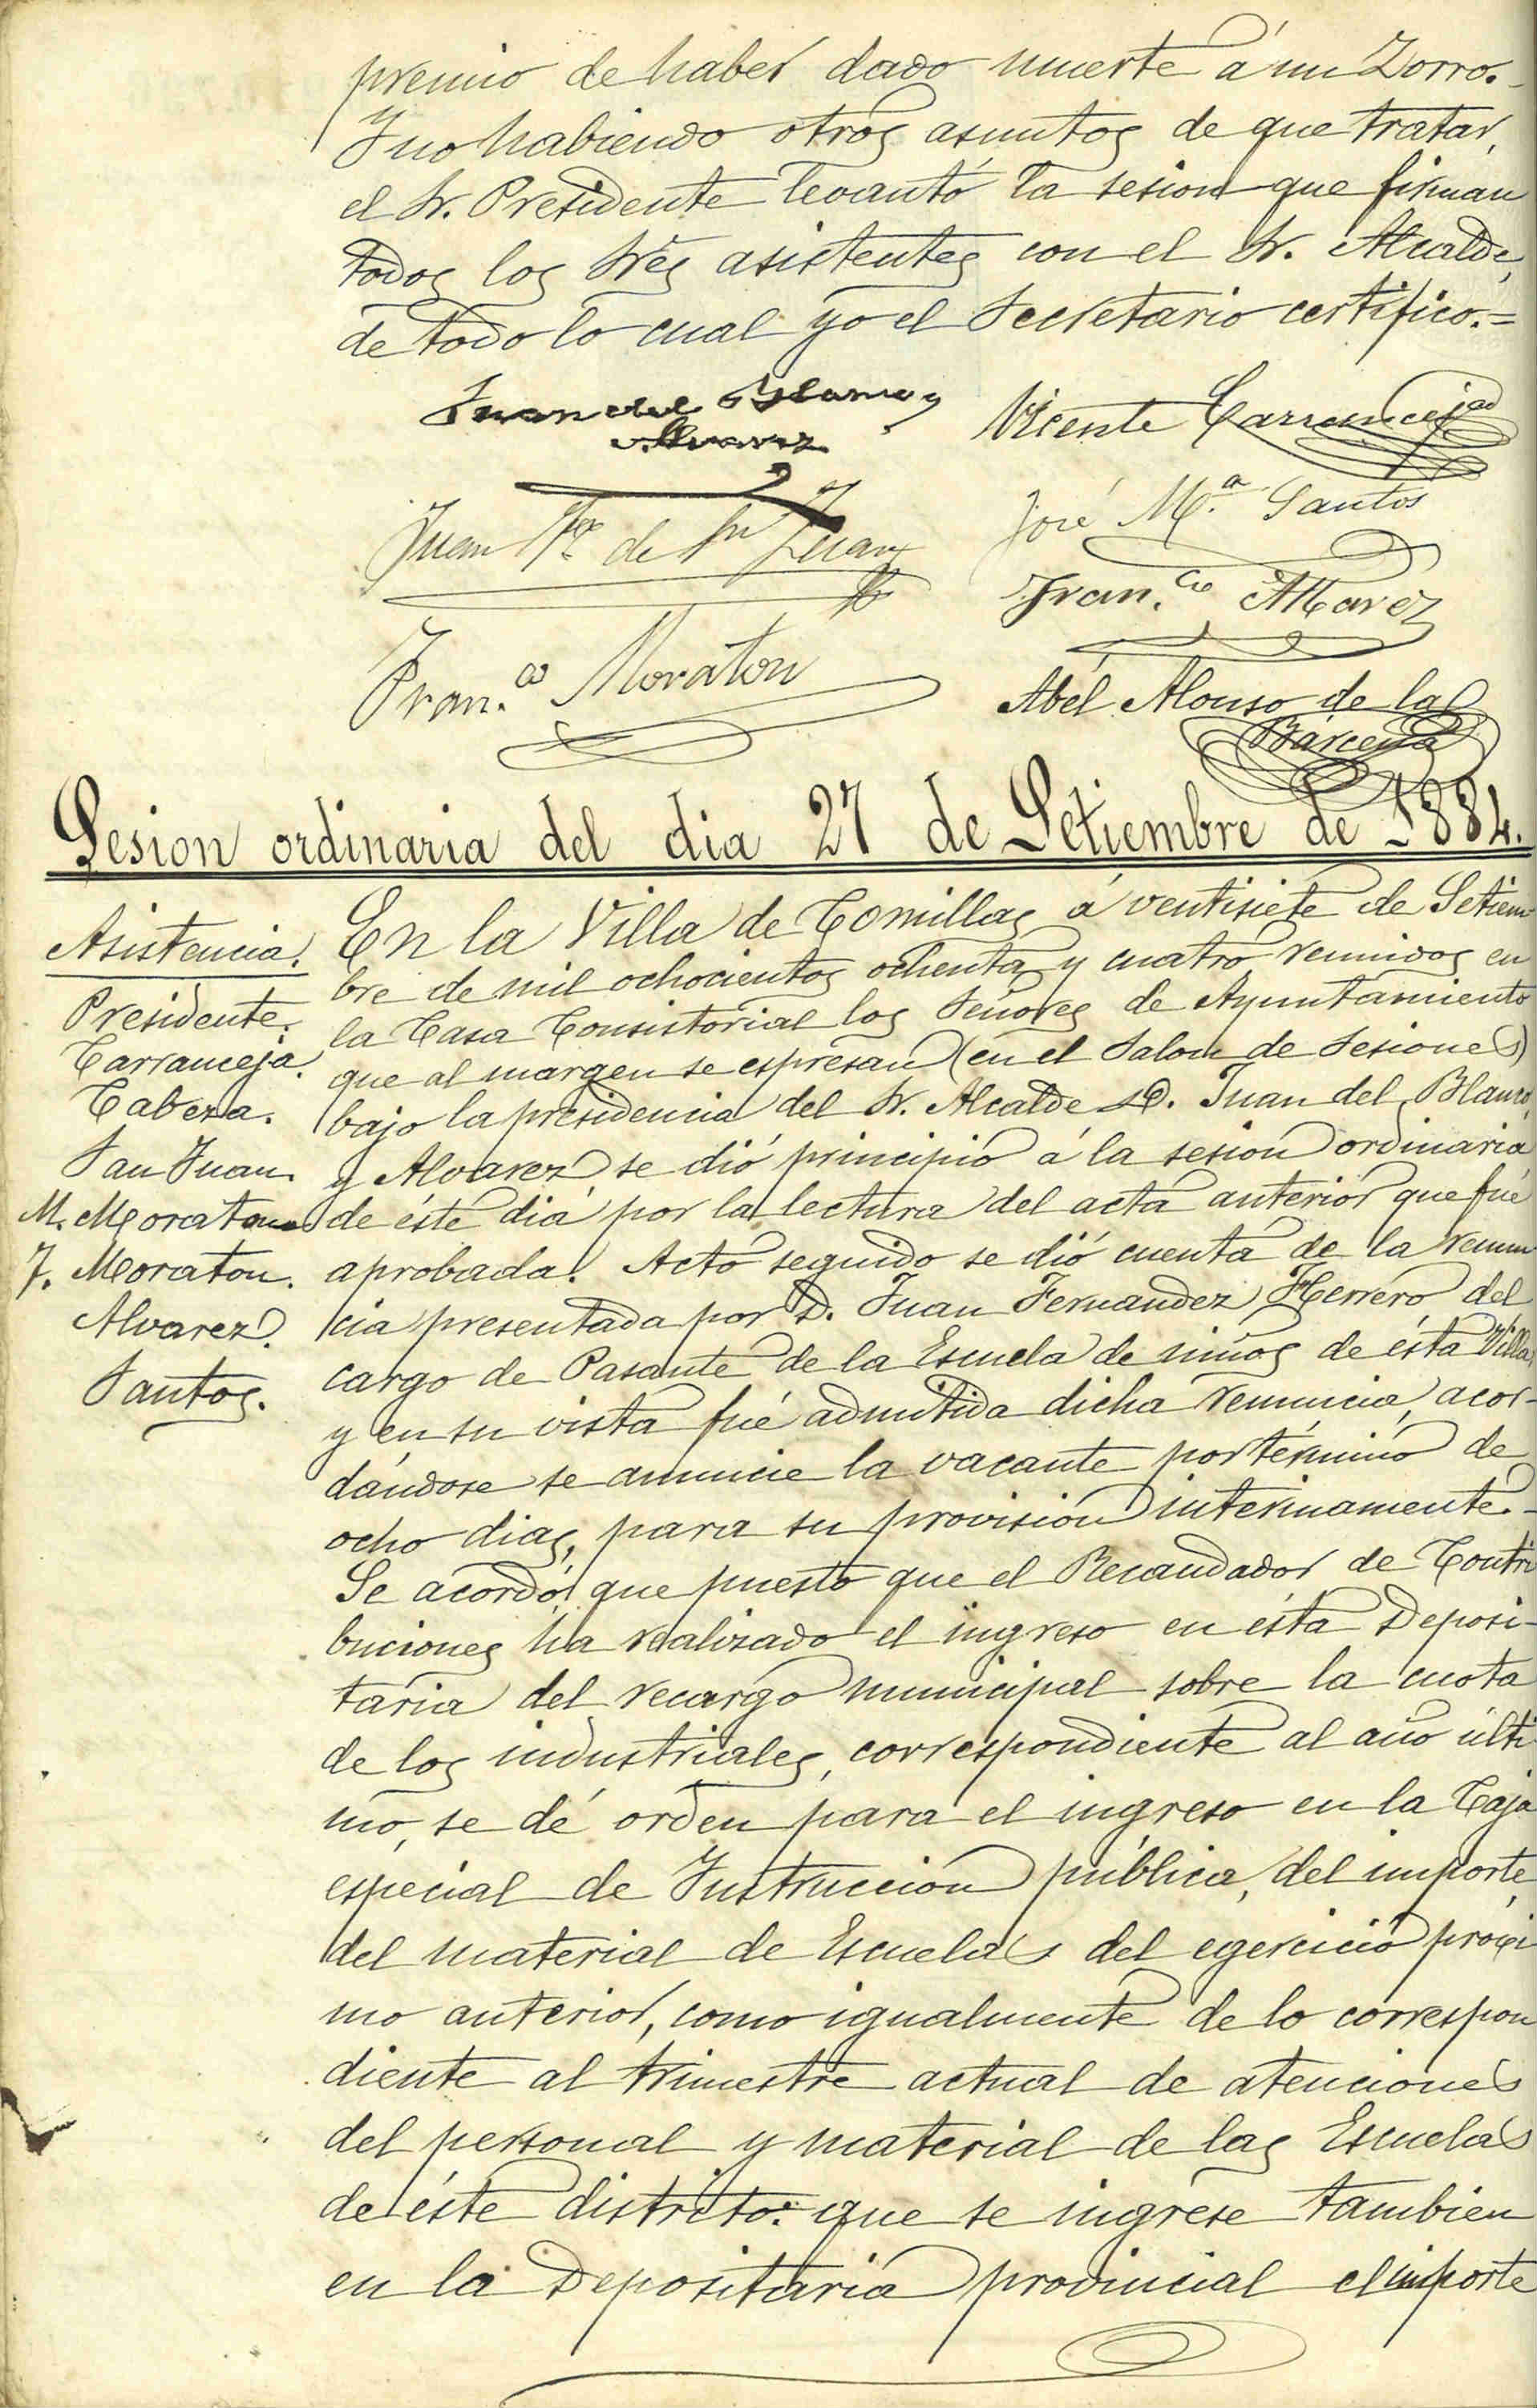 premio de haber dado muerte á un Zorro.-
Y no habiendo otros asuntos de que tratar,
el Sr. Presidente levantó la sesion que firman
todos los Sres asistentes con el Sr. Alcalde,
de todo lo cual yo el Secretario certifico.=
Juan del Blanco y
Alvarez
Vicente Carranceja
Juan de Sn Juan
José M.ª Santos
Fran.co Alvarez
Fran.co Moraton
Abel Alonso de la
Bárcena
Sesion ordinaria del dia 27 de Setiembre de 1884.
Asistencia.
Presidente.
Carranceja.
Cabeza.
San Juan.
M. Moraton
J. Moraton.
Alvarez.
Santos.
En la Villa de Comillas á ventisiete de Setiem
bre de mil ochocientos ochenta y cuatro reunidos en
la Casa Consistorial los Señores de Ayuntamiento
que al margen se espresan (en el Salon de Sesiones)
bajo la presidencia del Sr. Alcalde D. Juan del Blanco
y Alvarez se dió principio á la sesion ordinaria
de éste dia por la lectura del acta anterior que fué
aprobada. Acto seguido se dió cuenta de la renun
cia presentada por D. Juan Fernandez Herrero del
cargo de Pasante de la Escuela de niños de ésta Villa
y en su vista fué admitida dicha renuncia, acor-
dándose se anuncie la vacante por término de
ocho dias, para su provision interinamente.-
Se acordó que puesto que el Recaudador de Contri
buciones ha realizado el ingreso en ésta Deposi-
taria del recargo municipal sobre la cuota
de los industriales, correspondiente al año últi
mo, se dé orden para el ingreso en la Caja
especial de Instruccion pública, del importe
del material de Escuelas del egercicio próxi
mo anterior, como igualmente de lo correspon
diente al trimestre actual de atenciones
del personal y material de las Escuelas
de éste distrito: que se ingrese tambien
en la Depositaria provincial el importe